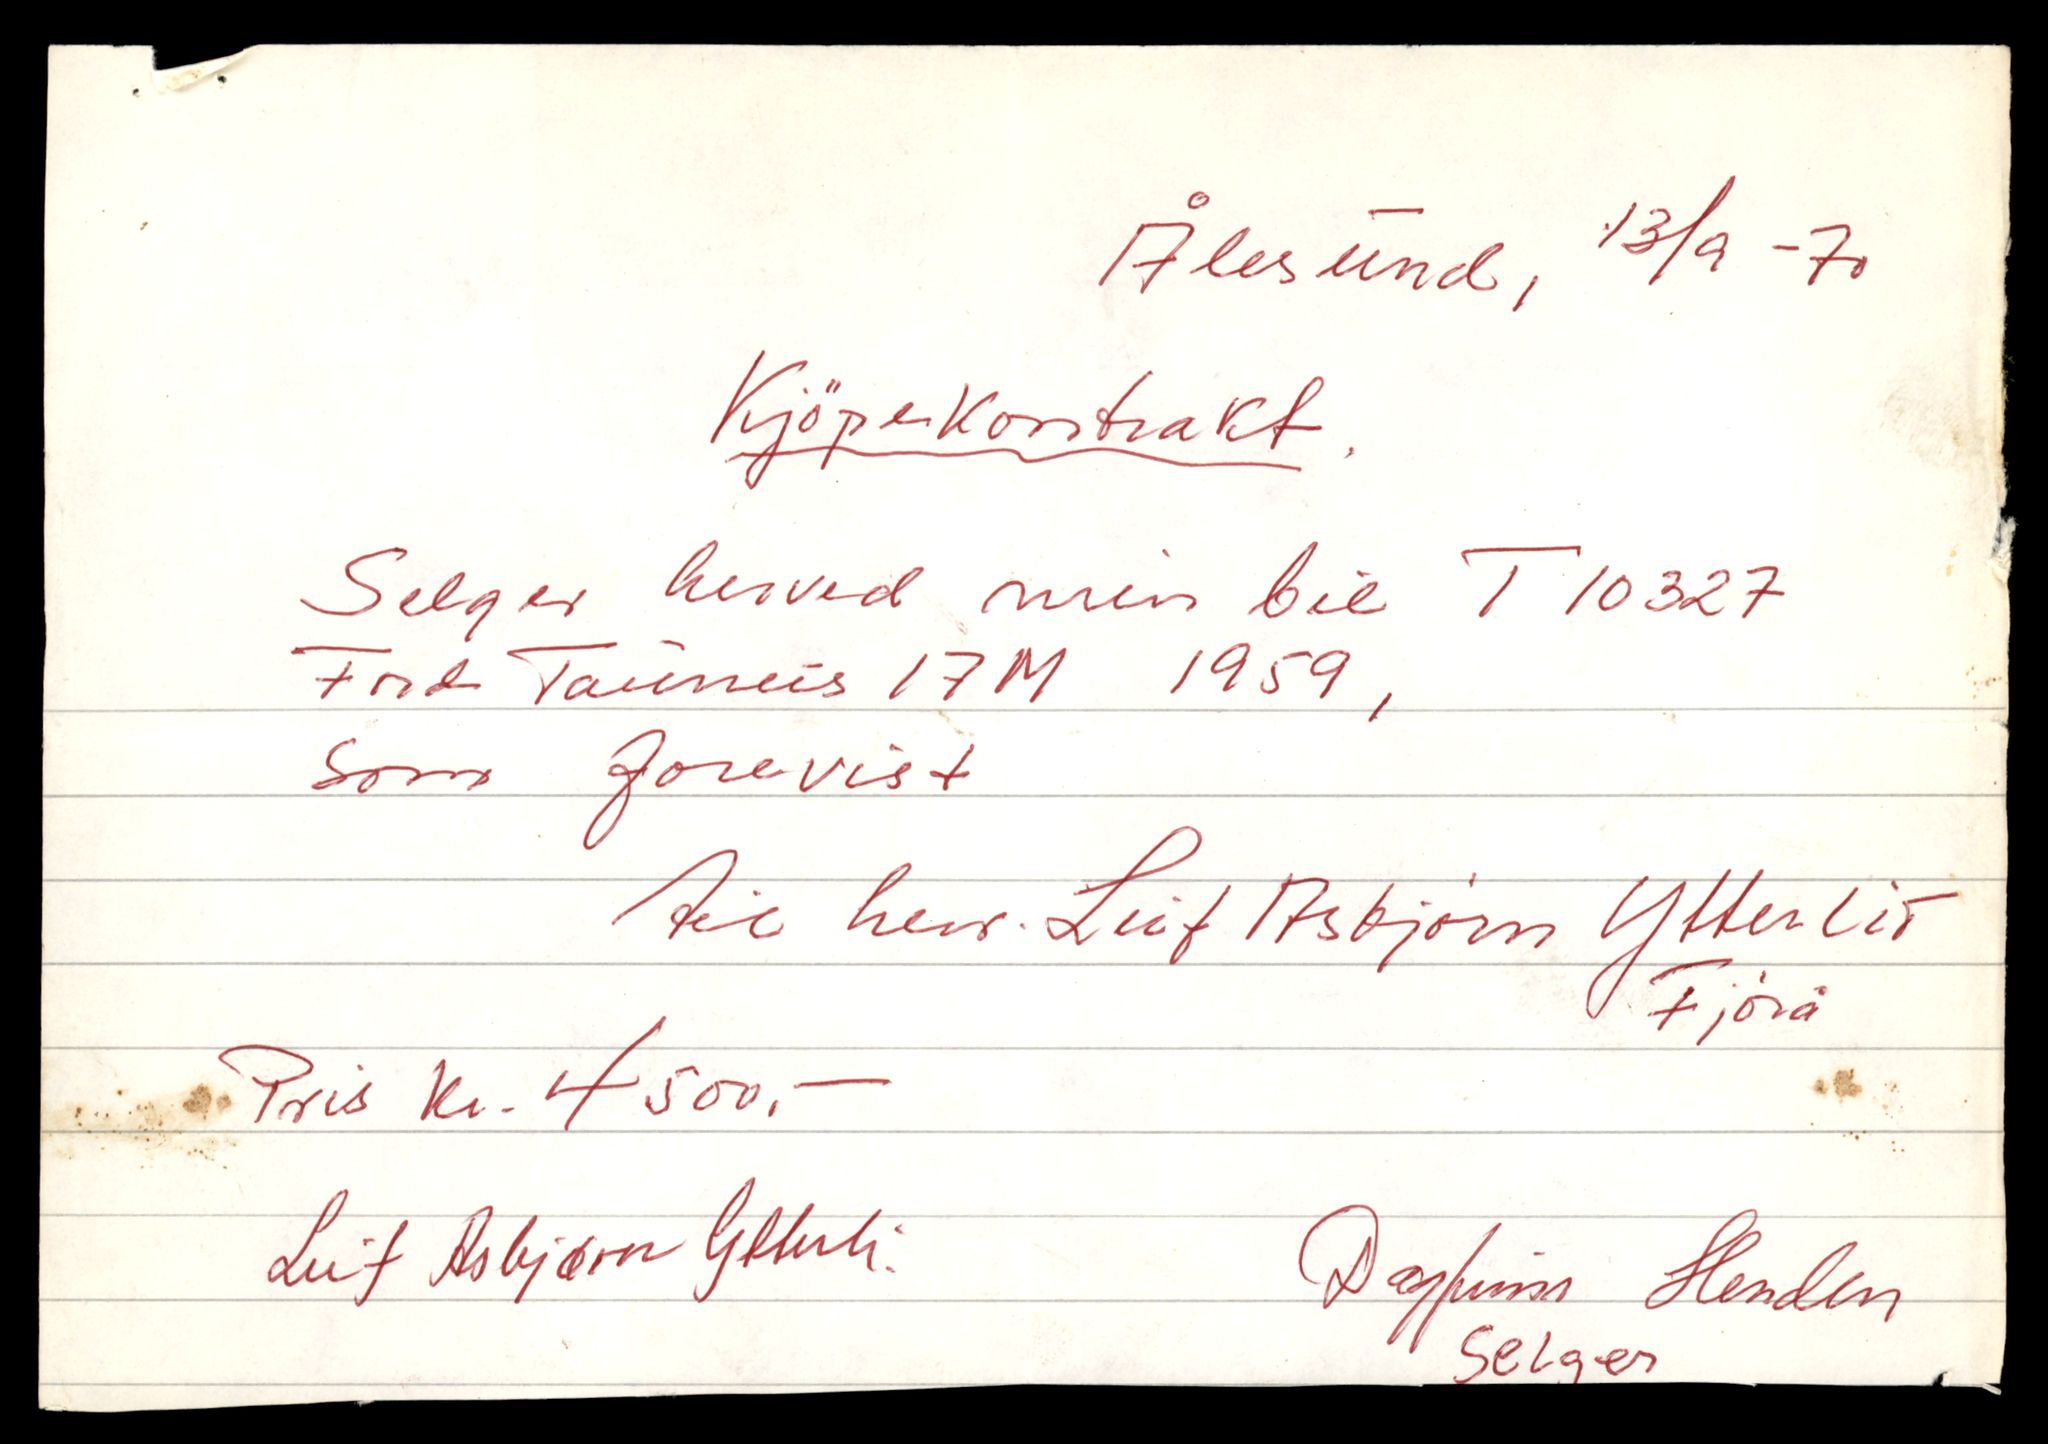 Ålesund, 13/9 -70
Kjöpekontrakt.
Selger herved min bil T 10327
Ford Taunus 17M 1959,
som forevist
til herr. Leif Asbjörn Ytterli
Fjörå
Pris kr. 4500.-
Leif Asbjørn Ytterli.
Dagfinn Henden
Selger